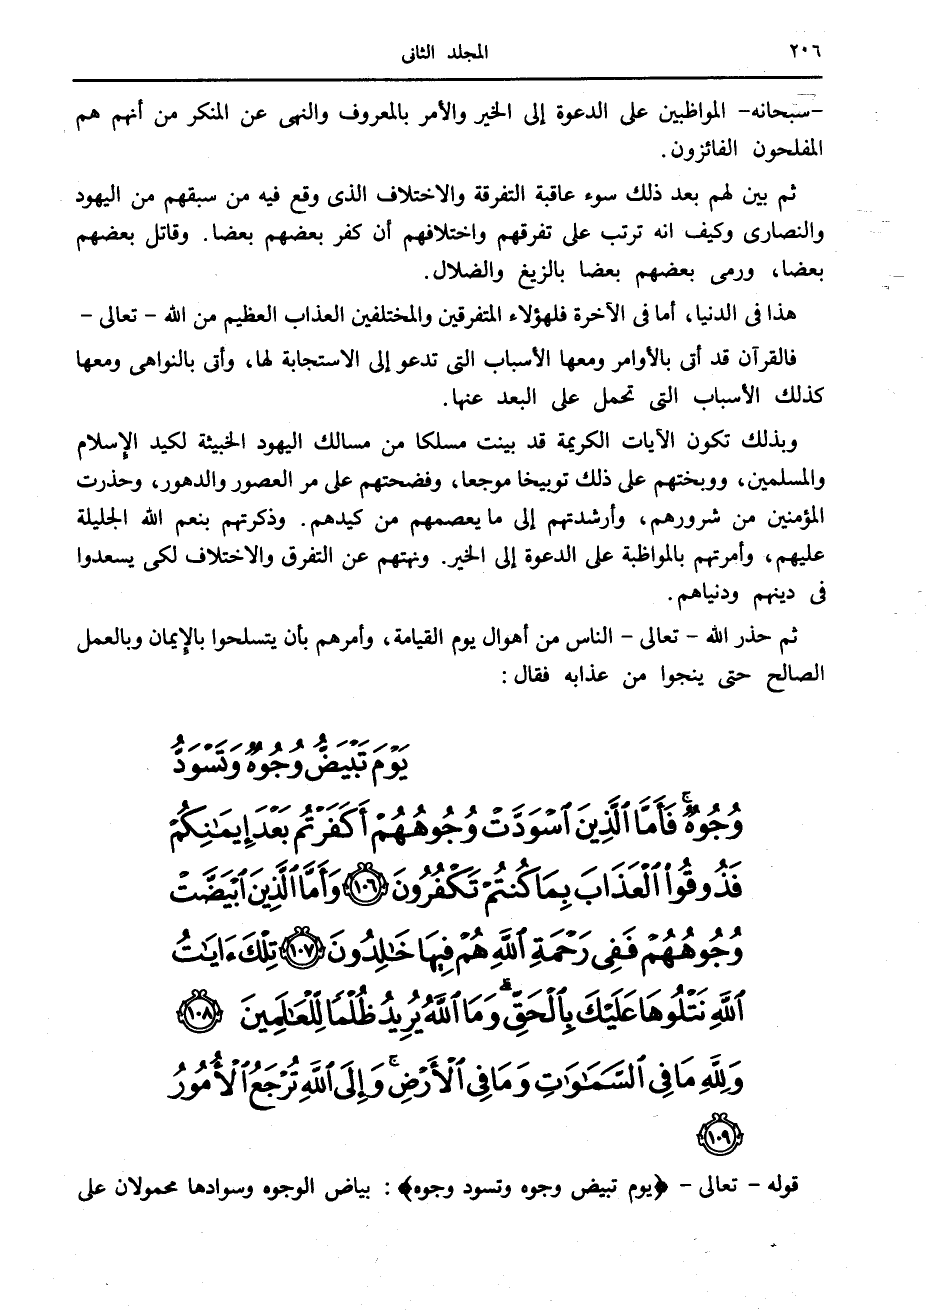 ٢٠٦ المجلد الثانى
-سبحانه- المواظبين على الدعوة إلى الخير والأمر بالمعروف والنهى عن المنكر من أنهم هم
المفلحون الفائزون.
ثم بين لهم بعد ذلك سوء عاقبة التفرقة والاختلاف الذى وقع فيه من سبقهم من اليهود
والنصارى وكيف انه ترتب على تفرقهم واختلافهم أن كفر بعضهم بعضا. وقاتل بعضهم
بعضا، ورمى بعضهم بعضا بالزيغ والضلال.
هذا فى الدنيا، أما فى الآخرة فلهؤلاء المتفرقين والمختلفين العذاب العظيم من الله - تعالى -
فالقرآن قد أتى بالأوامر ومعها الأسباب التى تدعو إلى الاستجابة لها، وأتى بالنواهى ومعها
كذلك الأسباب التى تحمل على البعد عنها.
وبذلك تكون الآيات الكريمة قد بينت مسلكا من مسالك اليهود الخبيثة لكيد الإسلام
والمسلمين، ووبختهم على ذلك توبيخا موجعا، وفضحتهم على مر العصور والدهور، وحذرت
المؤمنين من شرورهم، وأرشدتهم إلى ما يعصمهم من كيدهم. وذكرتهم بنعم الله الجليلة
عليهم، وأمرتهم بالمواظبة على الدعوة إلى الخير. ونهتهم عن التفرق والاختلاف لكى يسعدوا
فى دينهم ودنياهم.
ثم حذر الله - تعالى - الناس من أهوال يوم القيامة، وأمرهم بأن يتسلحوا بالإيمان وبالعمل
الصالح حتى ينجوا من عذابه فقال :
يَوْمَ تَبْيَضُّ وُجُوهٌ وَتَسْوَدُّ
وُجُوهٌ ۚ فَأَمَّا ٱلَّذِينَ ٱسْوَدَّتْ وُجُوهُهُمْ أَكَفَرْتُم بَعْدَ إِيمَٰنِكُمْ
فَذُوقُوا۟ ٱلْعَذَابَ بِمَا كُنتُمْ تَكْفُرُونَ ١٠٦ وَأَمَّا ٱلَّذِينَ ٱبْيَضَّتْ
وُجُوهُهُمْ فَفِى رَحْمَةِ ٱللَّهِ هُمْ فِيهَا خَٰلِدُونَ ١٠٧ تِلْكَ ءَايَٰتُ
ٱللَّهِ نَتْلُوهَا عَلَيْكَ بِٱلْحَقِّ ۗ وَمَا ٱللَّهُ يُرِيدُ ظُلْمًا لِّلْعَٰلَمِينَ ١٠٨
وَلِلَّهِ مَا فِى ٱلسَّمَٰوَٰتِ وَمَا فِى ٱلْأَرْضِ ۚ وَإِلَى ٱللَّهِ تُرْجَعُ ٱلْأُمُورُ
١٠٩
قوله - تعالى - ﴿يوم تبيض وجوه وتسود وجوه﴾ : بياض الوجوه وسوادها محمولان على